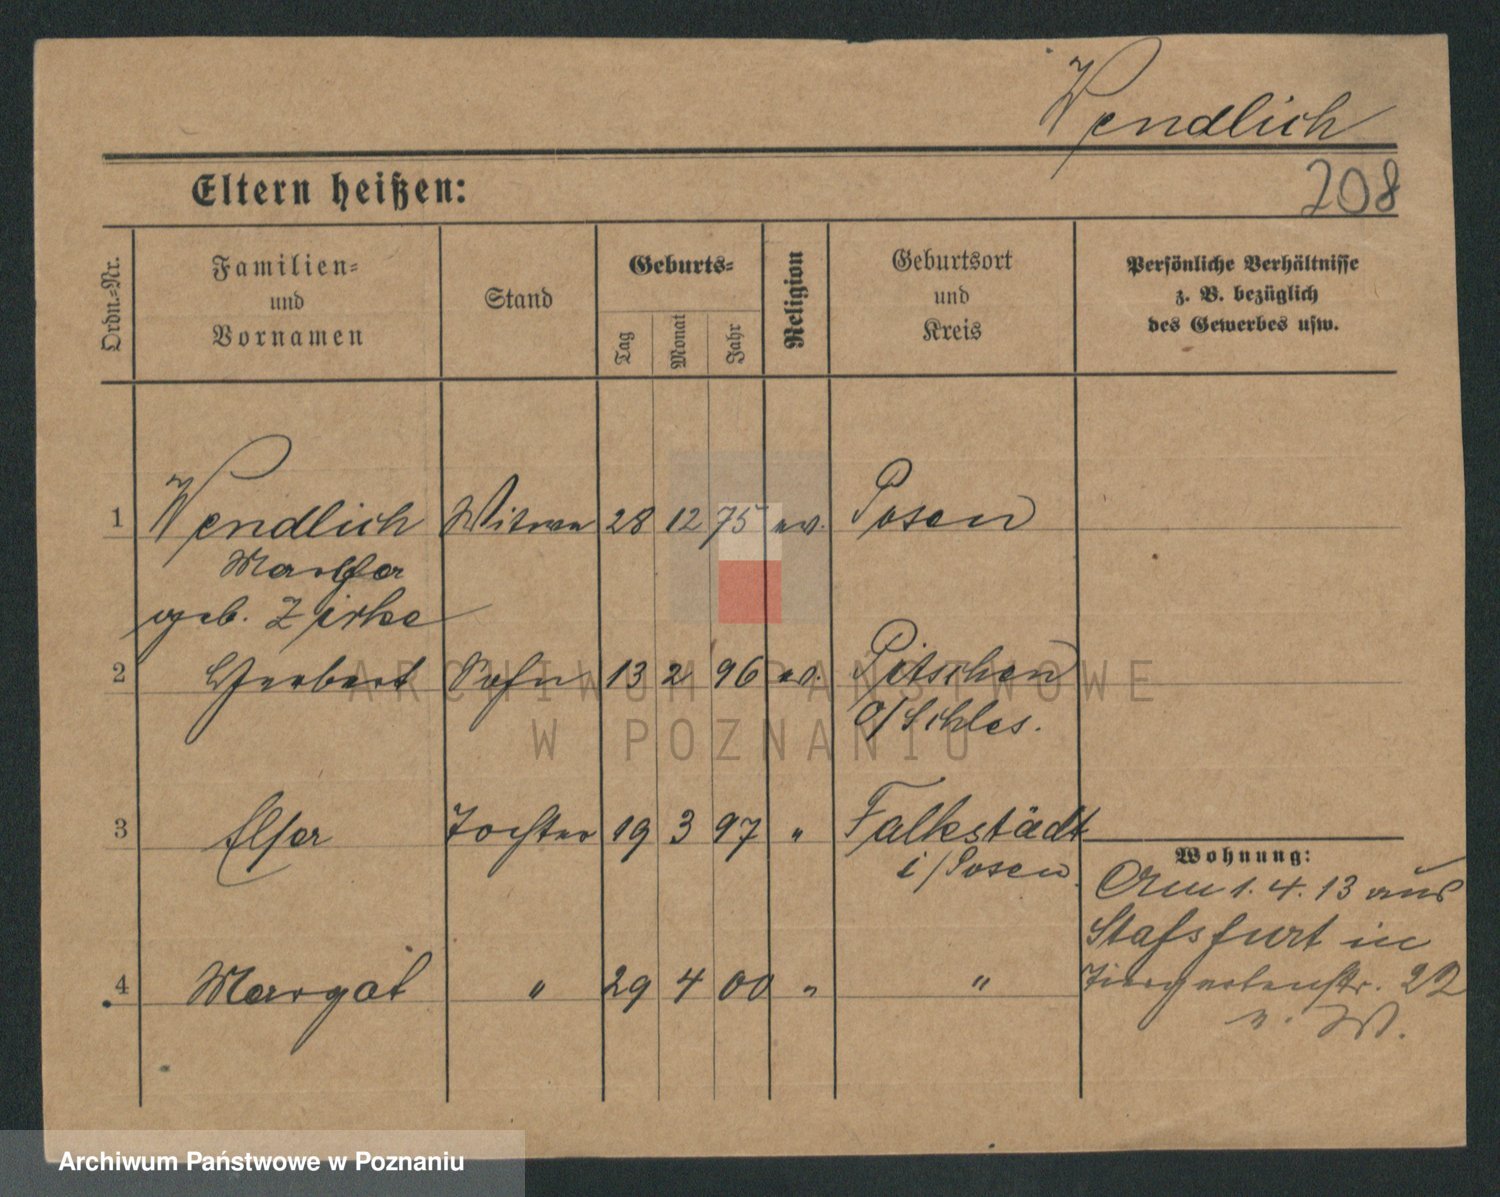 Wendlich
Eltern heißen:
208
Ordn.-Nr.
Familien-
und
Vornamen
Stand
Geburts-
Tag
Monat
Jahr
Religion
Geburtsort
und
Kreis
Persönliche Verhältnisse
z. B. bezüglich
des Gewerbes usw.
1 Wendlich Witwe 28 12 75 ev. Posen
geb. Zirke
2 Herbert Sohn 13 2 96 ev. Pitschen
O/Schles.
3 Tochter 19 3 97 " Falkstädt
i/Posen
4 Margot " 29 4 00 " "
Wohnung:
Am 1. 4. 13 aus
Stassfurt in
Tiergartenstr. 22
ARCHIWUM PAŃSTWOWE
W POZNANIU
Archiwum Państwowe w Poznaniu